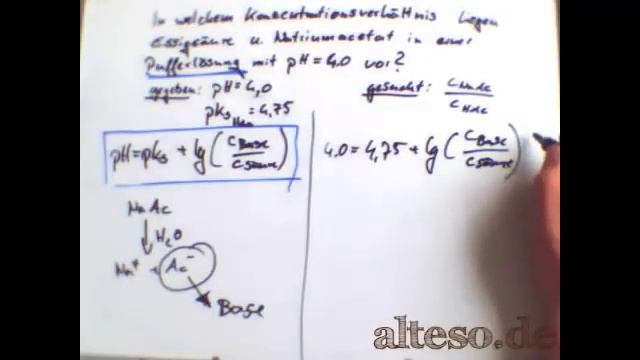 In welchem Konzentrationsverhältnis liegen
Essigsäure u. Natriumacetat in einer
Pufferlösung mit pH=4.0 vor?
gegeben: pH=4,0 gesucht: c NaAc / c HAc
pKs HAc = 4,75
pH=pKs + lg (c Base / c Säure) 4.0 = 4,75 + lg (c Base / c Säure)
NaAc
H2O
Na+ + Ac-
Base
alteso.de